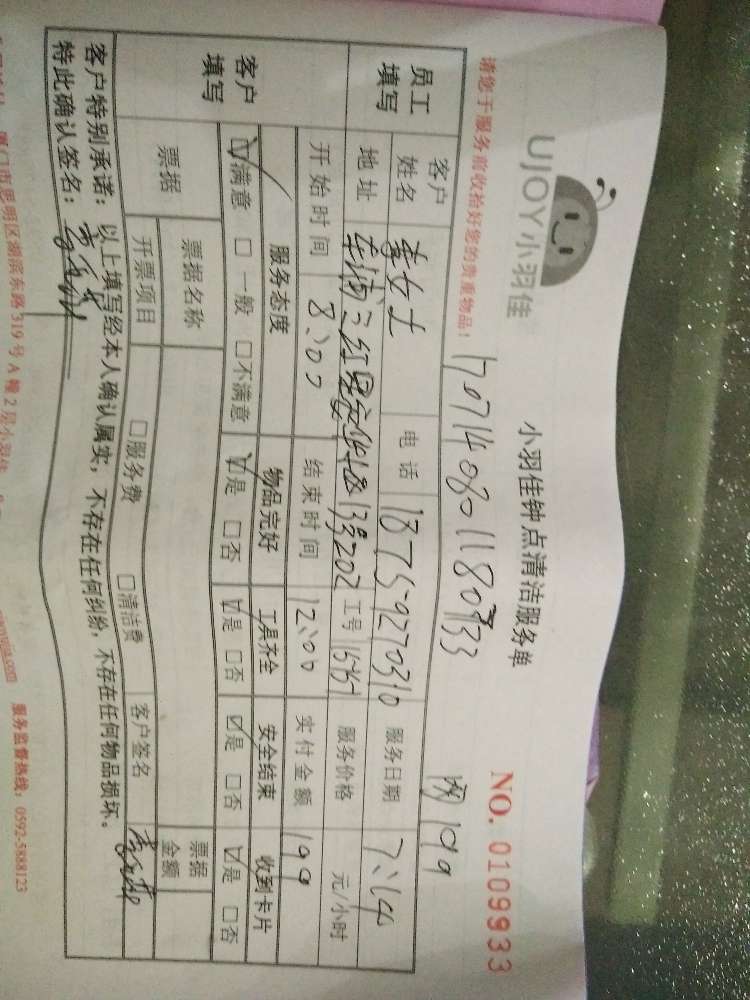 UJOY小羽佳
小羽佳钟点清洁服务单
NO. 0109933
请您于服务前收拾好您的贵重物品！
1707140801180733
199
员工填写
客户姓名 李女士 电话 18759270310 服务日期 7:14
地址 13号202 工号 服务价格 元/小时
开始时间 8:00 结束时间 12:00 实付金额 199
客户填写
服务态度 物品完好 工具齐全 安全结束 收到卡片
☑满意 □一般 □不满意 ☑是 □否 ☑是 □否 ☑是 □否 ☑是 □否
票据 票据名称 票据金额
开票项目 □服务费 □清洁费 客户签名
客户特别承诺：以上填写经本人确认属实，不存在任何纠纷，不存在任何物品损坏。
特此确认签名：
厦门市思明区湖滨东路319号A幢2层小羽佳
服务监督热线：0592-5888123